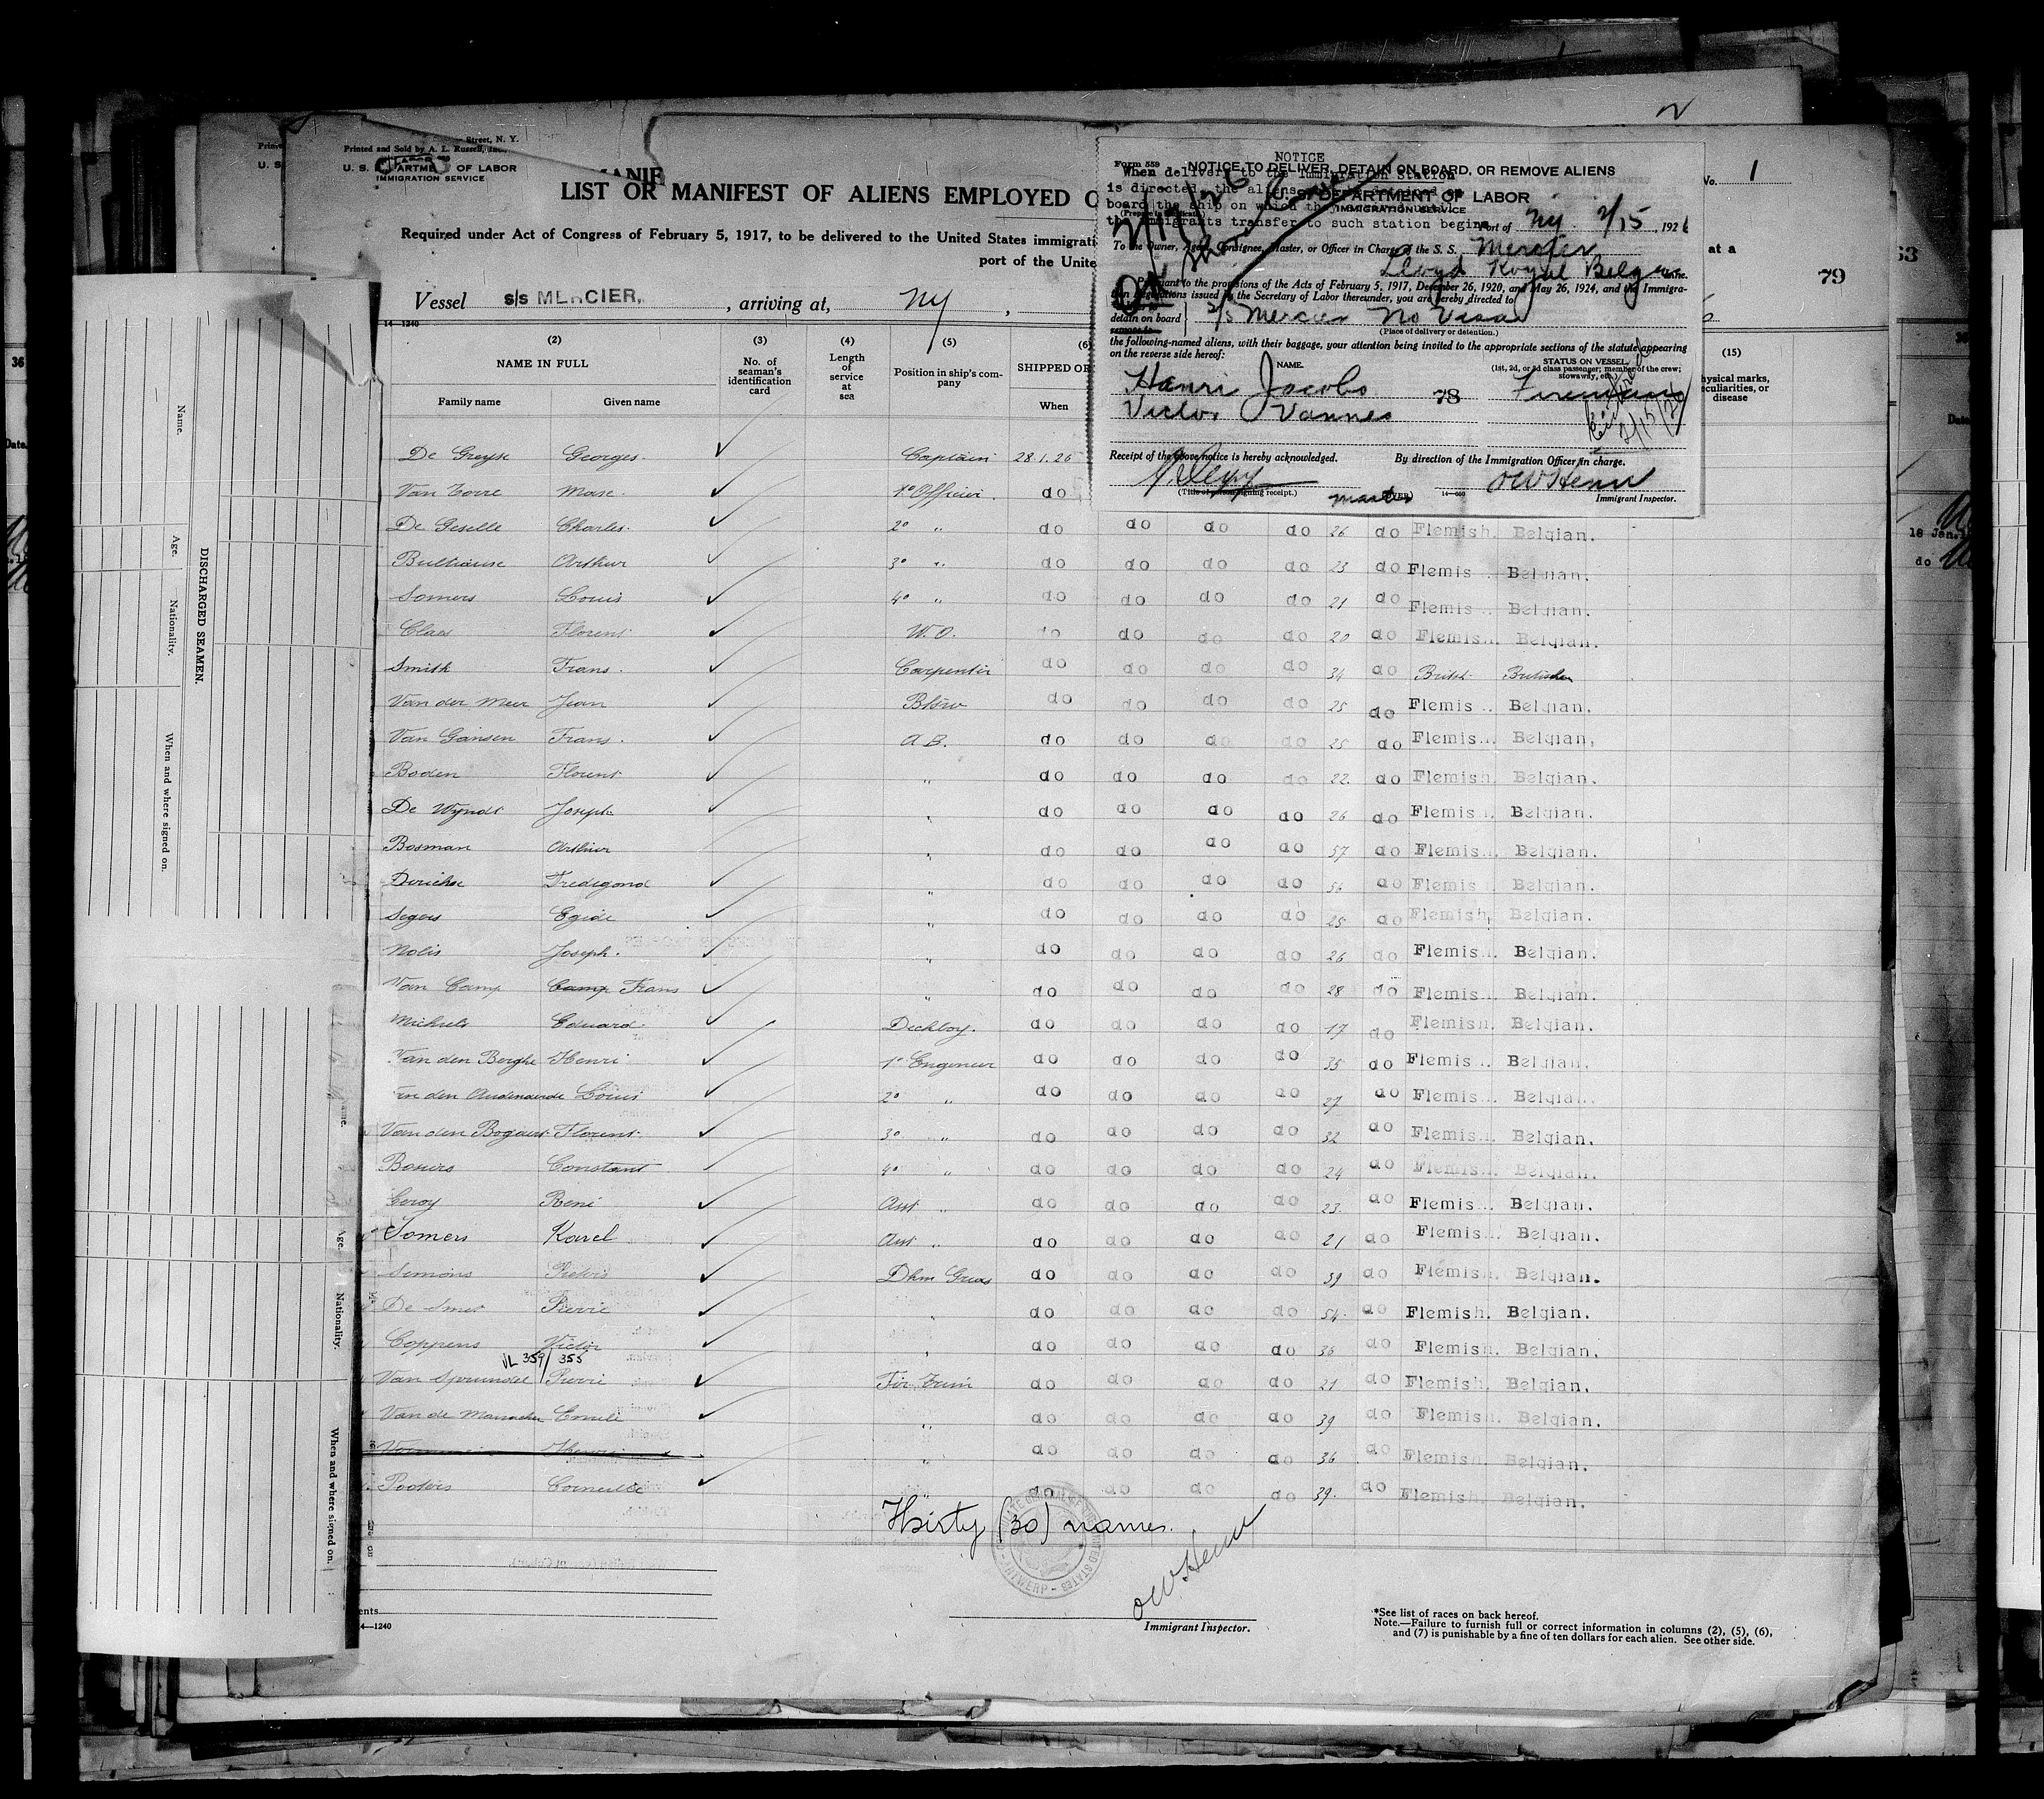 Printed and Sold by A. L. Russell, Inc.
Street, N. Y.
U. S. DEPARTMENT OF LABOR
IMMIGRATION SERVICE
LIST OR MANIFEST OF ALIENS EMPLOYED O
Required under Act of Congress of February 5, 1917, to be delivered to the United States immigrati
port of the Unite
Vessel s/s MERCIER, , arriving at, NY ,
14—1240
No. 1
at a
79
63
NOTICE
Form 559
NOTICE TO DELIVER, DETAIN ON BOARD, OR REMOVE ALIENS
When delivery to the immigration station
is directed, the aliens
U. S. DEPARTMENT OF LABOR
board the ship on which they
IMMIGRATION SERVICE
immigrants transfer to such station begins
Port of NY. 2/15, 1926
To the Owner, Agent, Consignee, Master, or Officer in Charge of the S. S. Mercier
Lloyd Royal Belge Line.
Pursuant to the provisions of the Acts of February 5, 1917, December 26, 1920, and May 26, 1924, and the Immigra-
tion Regulations issued by the Secretary of Labor thereunder, you are hereby directed to
detain on board S/S Mercier No Visa
remove to
(Place of delivery or detention.)
the following-named aliens, with their baggage, your attention being invited to the appropriate sections of the statute appearing
on the reverse side hereof:
NAME.
STATUS ON VESSEL.
(1st, 2d, or 3d class passenger; member of the crew; stowaway, etc.)
Henri Jacobs 78 Fireman
Victor Vannes
2/15/26
Receipt of the above notice is hereby acknowledged.
By direction of the Immigration Officer in charge.
(Title of person signing receipt.)
master
(OVER)
OW Henn
Immigrant Inspector.
(2)
NAME IN FULL
Family name
Given name
(3)
No. of seaman's identification card
(4)
Length of service at sea
(5)
Position in ship's company
(6)
SHIPPED OR
When
(15)
Physical marks, peculiarities, or disease
De Greyse Georges. Captain 28.1.26
Van Torre Marc. 1° Officier. do
De Geselle Charles. 2° " do do do do 26 do Flemish. Belgian.
Bultiause Arthur 3° " do do do do 23 do Flemis Belgian.
Somers Louis 4° " do do do do 21 do Flemis Belgian.
Claes Florent W.O. do do do do 20 do Flemish. Belgian.
Smith Frans. Carpenter do do do do 34 do British
Van der Meer Jean Btsw do do do do 25 do Flemis Belgian.
Van Gansen Frans. A.B. do do do do 25 do Flemis Belgian,
Boden Florent " do do do do 22. do Flemish. Belgian.
De Wyndt Joseph " do do do do 26 do Flemis Belgian.
Bosman Arthur " do do do do 57 do Flemis. Belgian.
Dirickse Fredegond " do do do do 56 do Flemis Belgian.
Segers Egide " do do do do 25 do Flemish, Belgian.
Nolis Joseph. " do do do do 26 do Flemis Belgian.
Van Camp Camp Frans " do do do do 28 do Flemis Belgian.
Michiels Eduard. Deckboy. do do do do 17 do Flemish. Belgian.
Van den Berghe Henri 1° Engineer do do do do 35 do Flemis Belgian.
en den Audenaerde Louis 2° " do do do do 27 do Flemis Belgia
Van den Bogaert Florent. 3° " do do do do 32 do Flemis. Belgian.
Bauers Constant 4° " do do do do 24 do Flemish. Belgian.
Leroy René Asst " do do do do 23. do Flemis Belgian.
Somers Karel Asst " do do do do 21 do Flemis Belgian.
Simons Pieters Dkm Greas do do do do 39 do Flemish. Belgian.
De Smet Pierre " do do do do 54. do Flemish. Belgian.
Coppens Victor " do do do do 36 do Flemish. Belgian.
VL 359/355
Van Sprundel Pierre Fir. Trim do do do do 21 do Flemish, Belgian.
Van de Manacker Emile " do do do do 39 do Flemish. Belgian.
Henri " do do do do 36 do Flemish. Belgian.
Pooters Corneille " do do do do 39. do Flemish. Belgian.
Thirty (30) names.
ANTWERP
OW Henn
Immigrant Inspector.
*See list of races on back hereof.
Note.—Failure to furnish full or correct information in columns (2), (5), (6),
and (7) is punishable by a fine of ten dollars for each alien. See other side.
14—1240
DISCHARGED SEAMEN.
Name.
Age.
Nationality.
When and where signed on.
Name.
Age.
Nationality.
When and where signed on.
36
Date.
18 Jan.
do